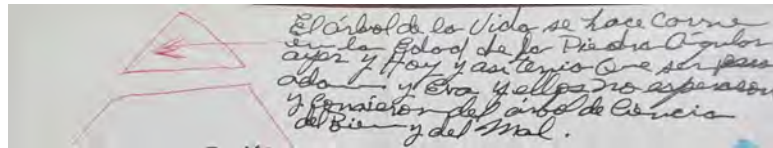 El árbol de la Vida se hace Carne
en la Edad de la Piedra Angular
ayer y Hoy y asi tenia que ser para
adan y Eva y ellos no esperaron
y comieron del árbol de Ciencia
del Bien y del Mal.